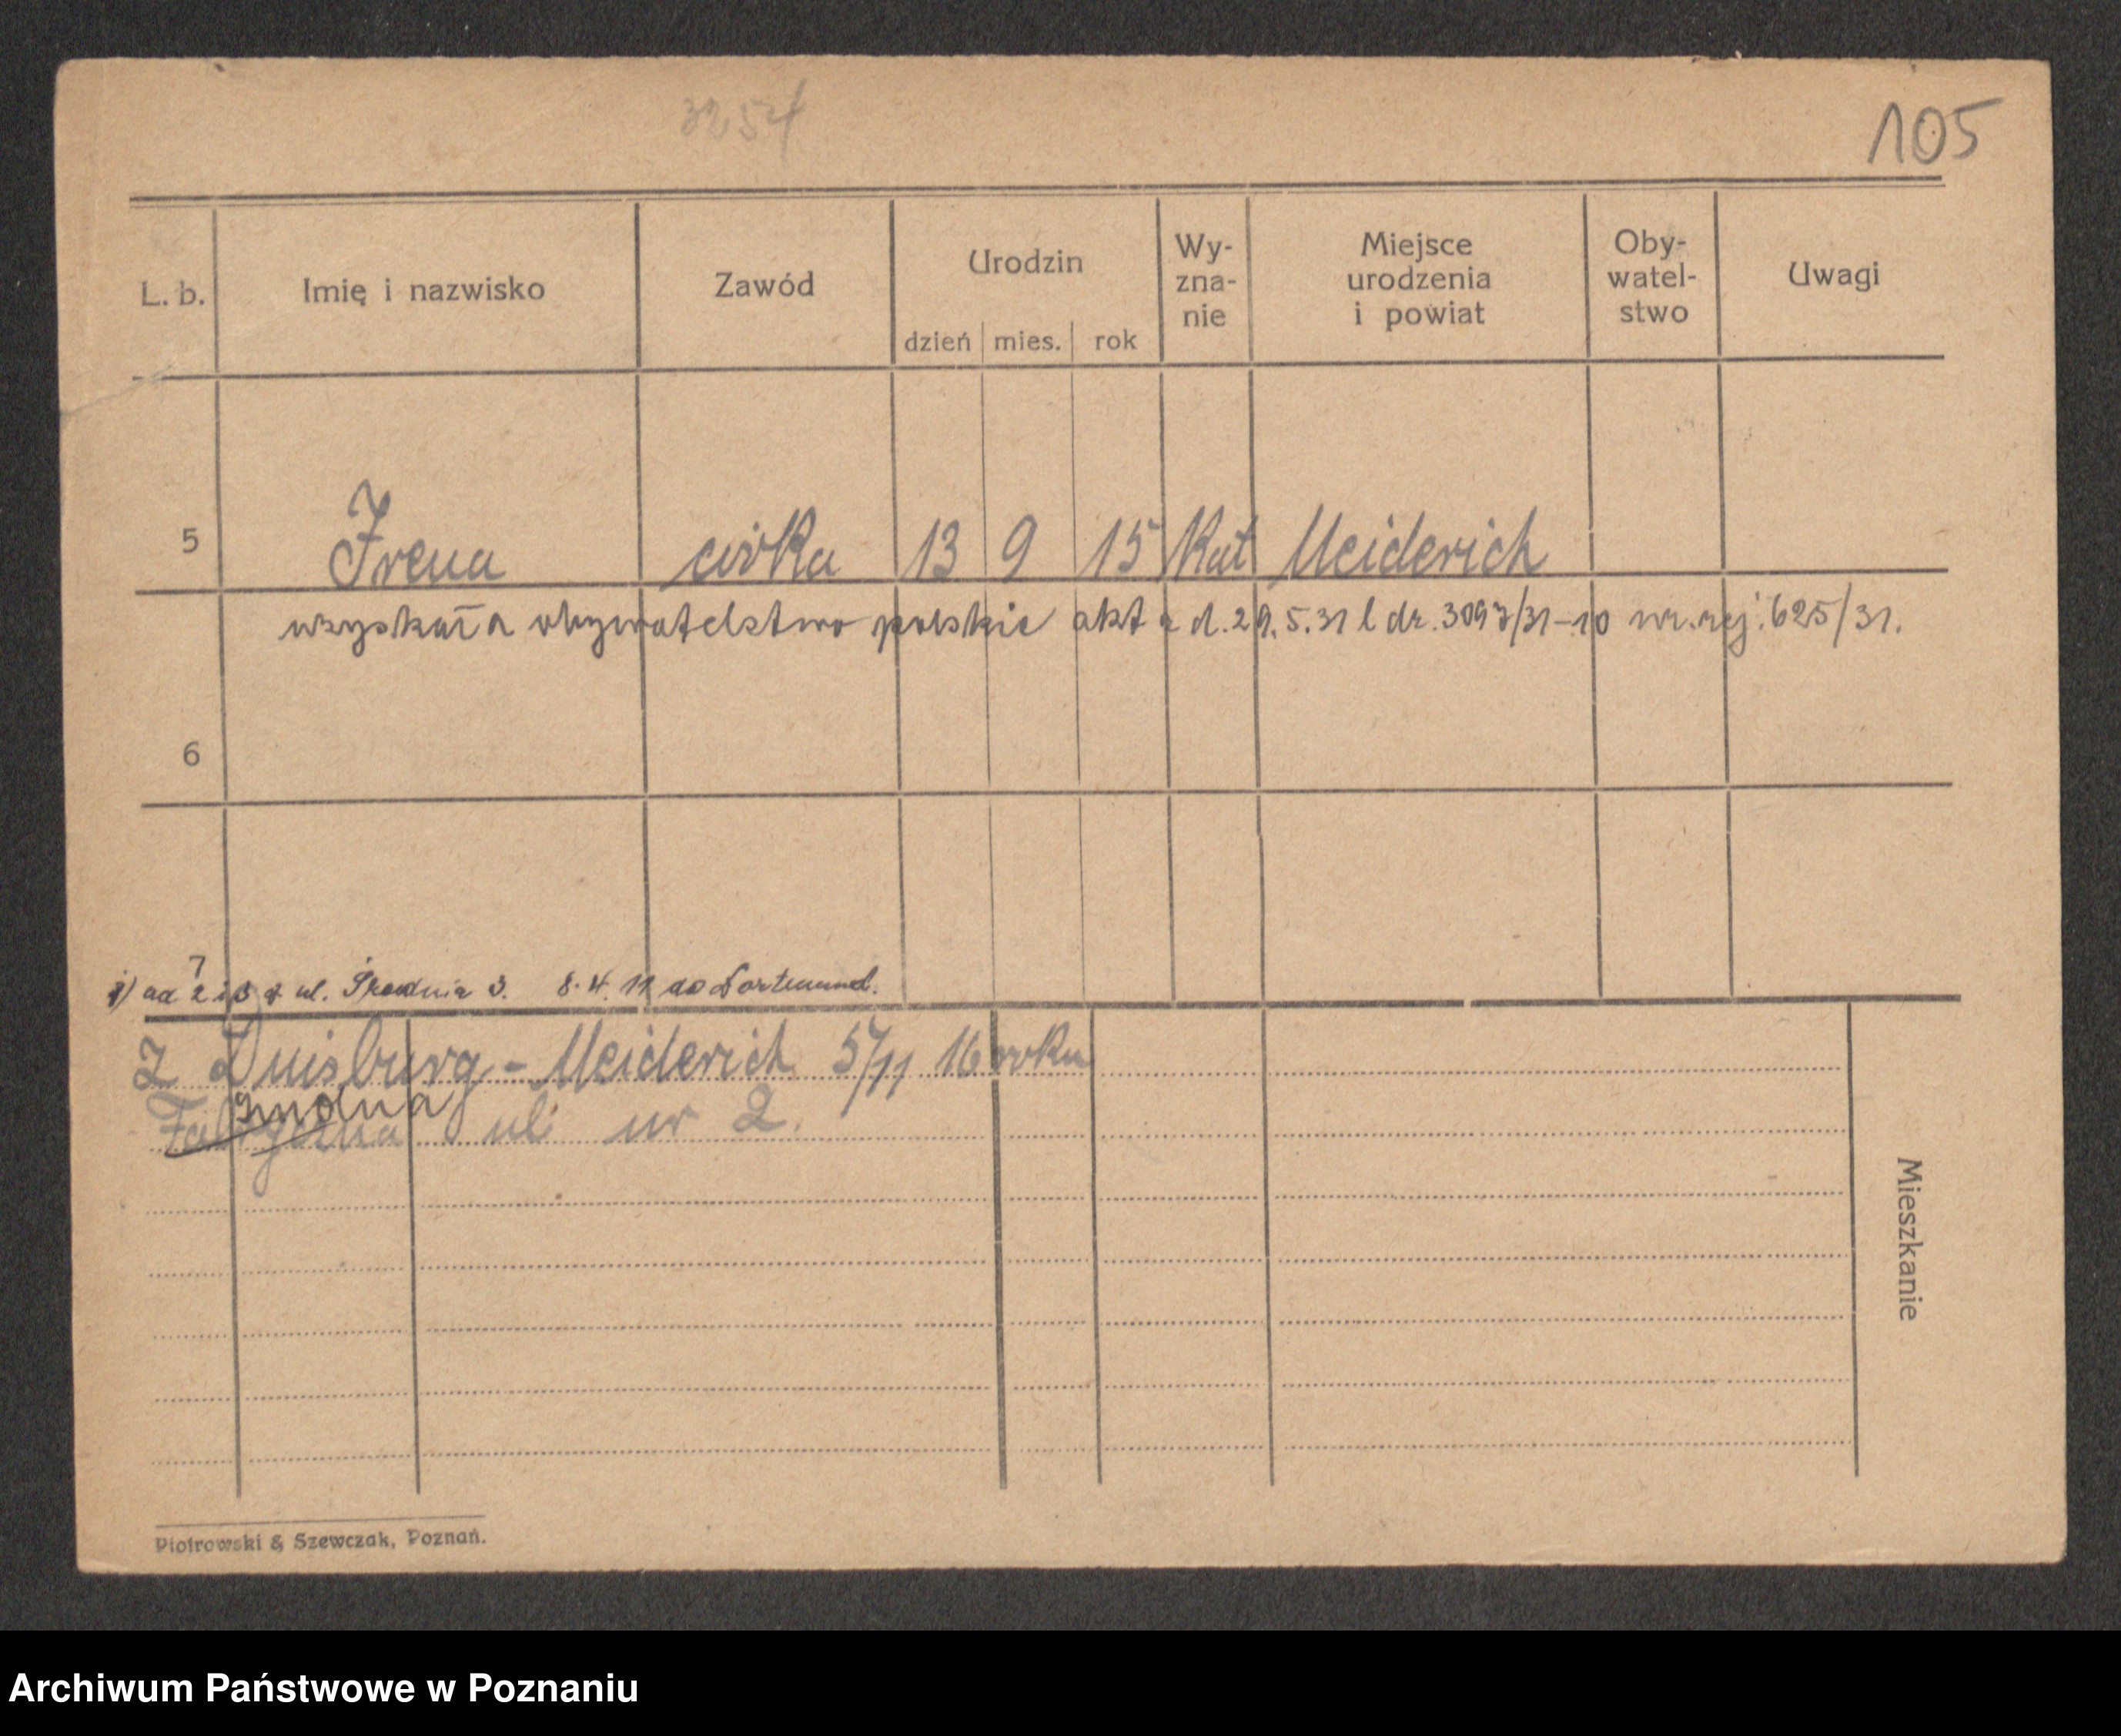 3254
105
L. b. Imię i nazwisko Zawód Urodzin dzień mies. rok Wy- zna- nie Miejsce urodzenia i powiat Oby- watel- stwo Uwagi
5 Irena córka 13 9 15 Kat Meiderich
uzyskała obywatelstwo polskie akt z d. 29.5.31 l dr. 3097/31-10 nr. rej. 625/31.
6
7
ad 2 i 3 z ul. Średnia 3. 8.4.11 do Dortmund.
Z Duisburg-Meiderich 5/11 16 roku
Fabryczna ul nr 2.
Mieszkanie
Piotrowski & Szewczak, Poznań.
Archiwum Państwowe w Poznaniu